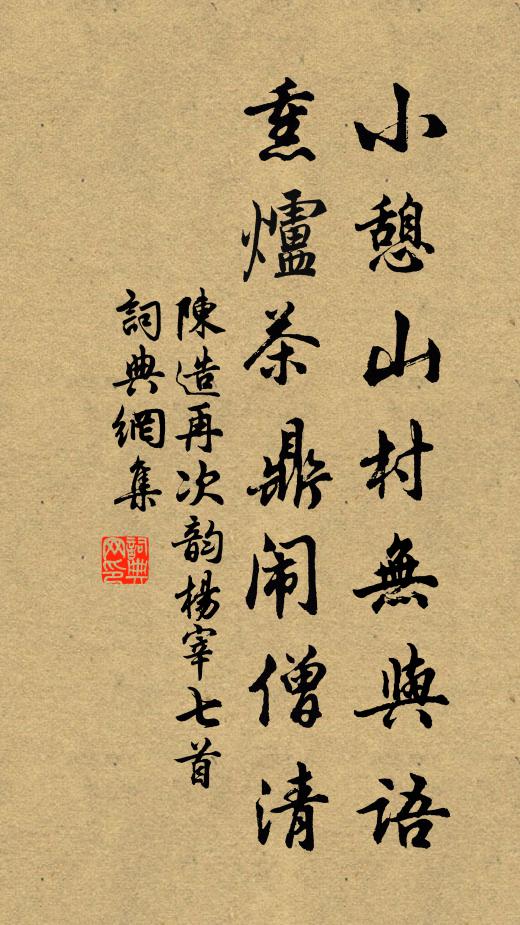 小憩山村無與語
熏爐茶鼎闹僧清
陳造再次韵楊宰七首
詞典網集
詞典
网印